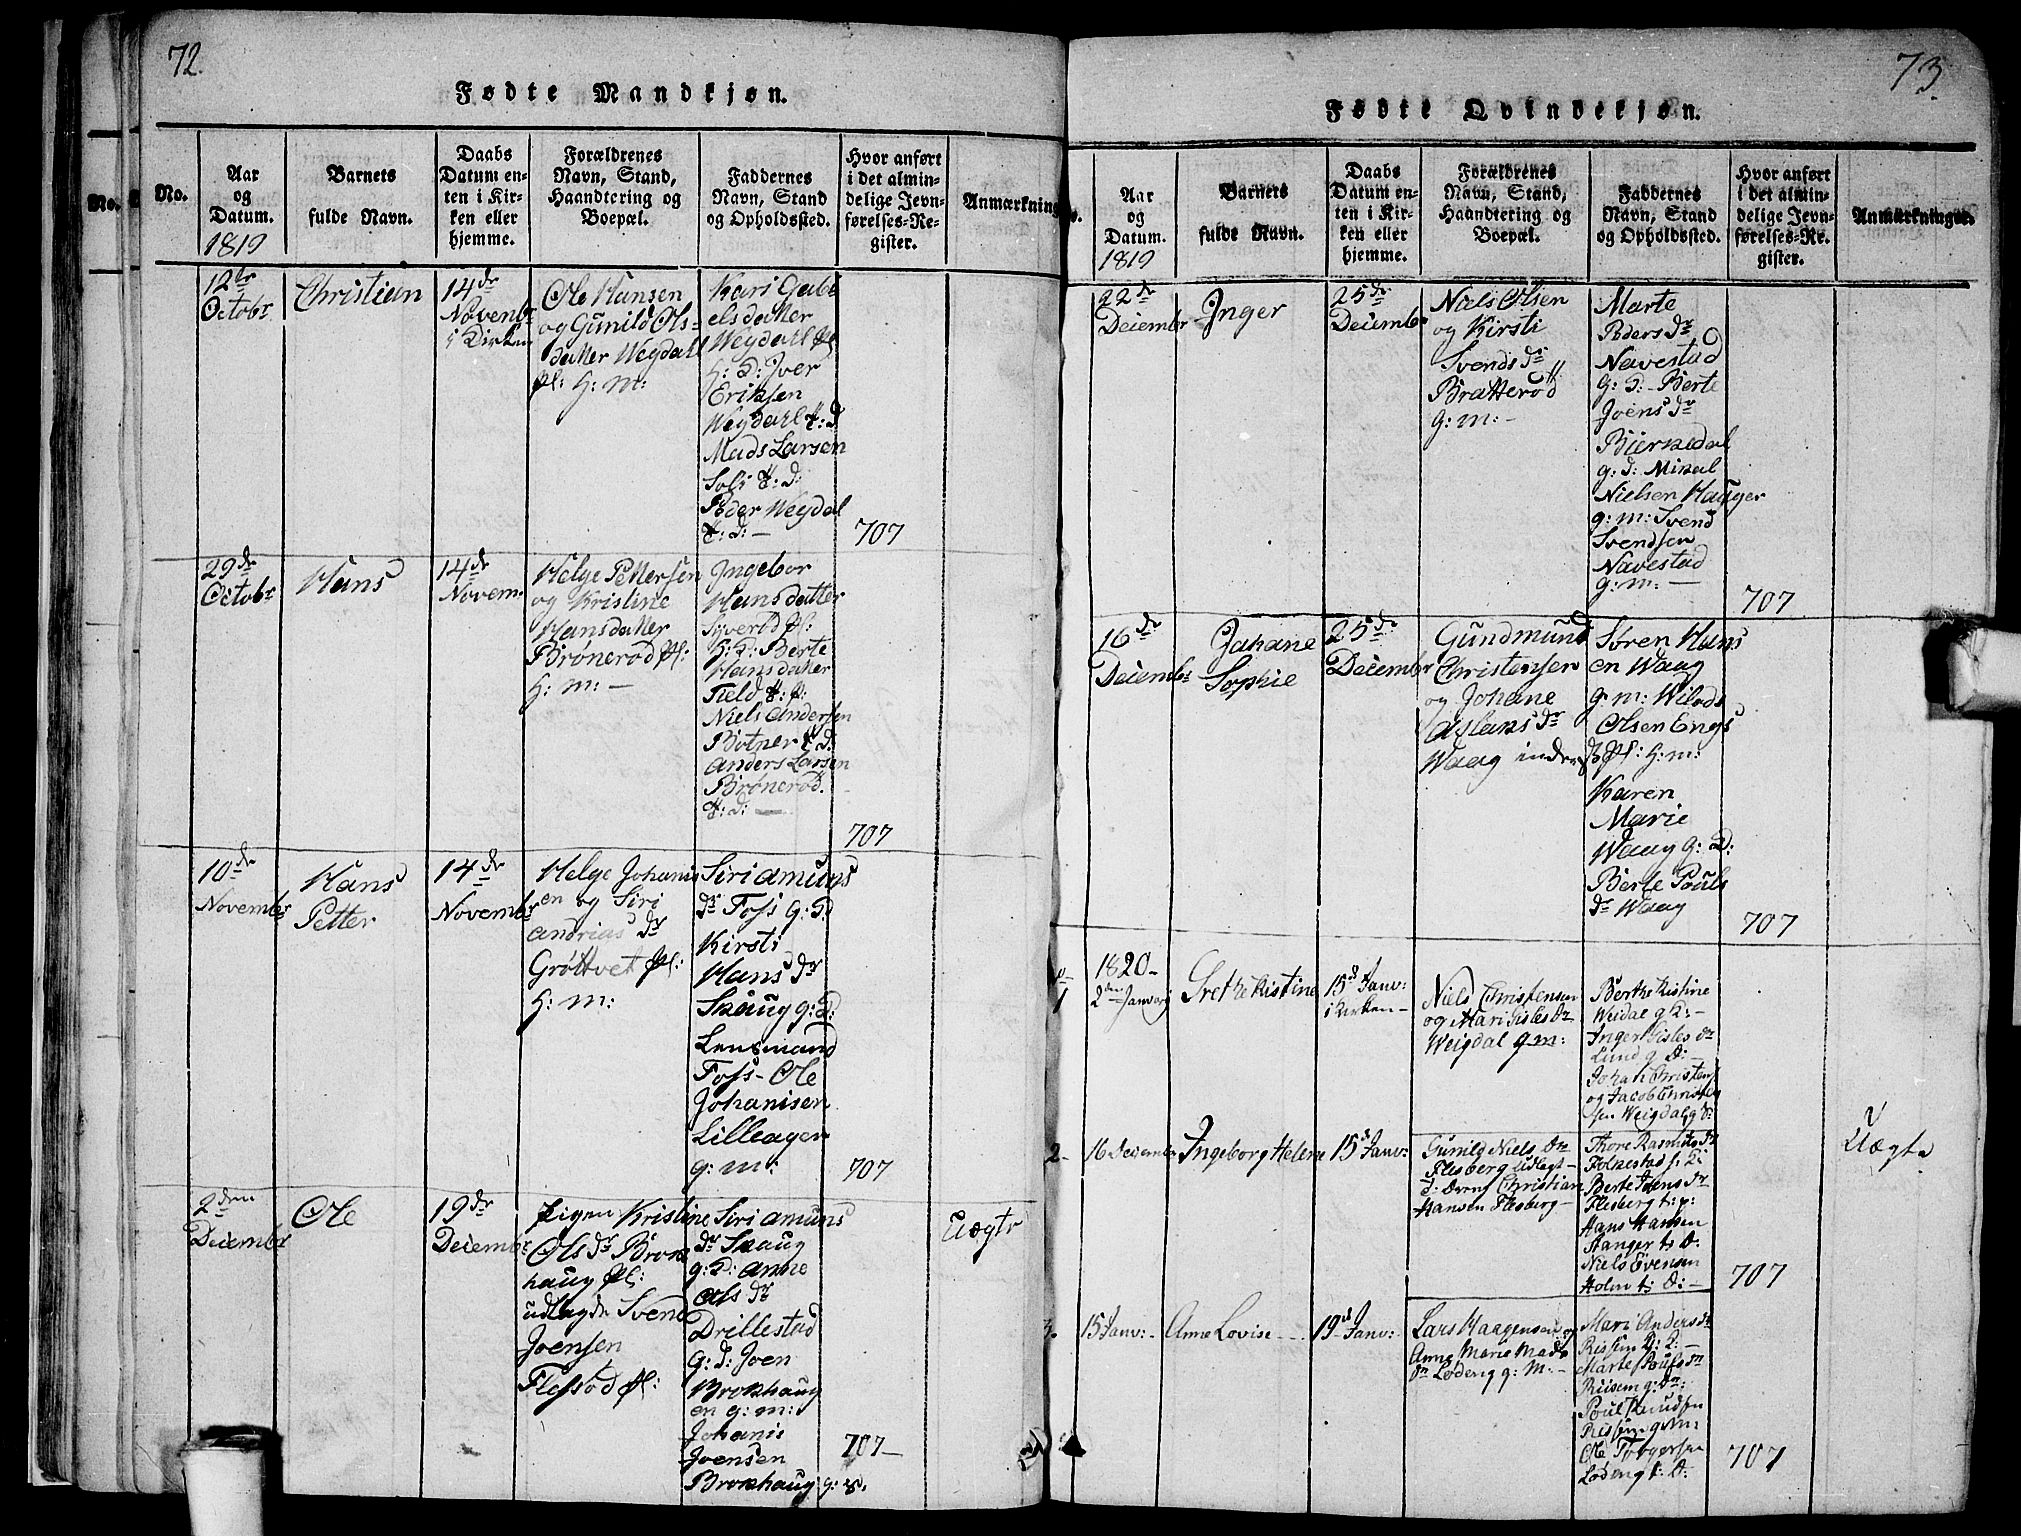 72.
Fødte Mandkjøn.
No.
No.
Aar
og
Datum.
1819
Barnets
fulde Navn.
Daabs
Datum en-
ten i Kir-
ken eller
hjemme.
Forældrenes
Navn, Stand,
Haandtering og
Boepæl.
Faddernes
Navn, Stand
og Opholdssted.
Hvor anført
i det almin-
delige Jevn-
førelses-Re-
gister.
Anmærkning
12te
Octobr
Christian
14de
Novenbr
i Kirken
Ole Hansen
og Gunild Ols=
datter Weydahl
pl: h: m:
Kari Gabri
elsdatter
Weydahl pl
h: D: Iver
Eriksen
Weydahl u: d
Mads Larsen
Soli u: d:
Peder Weydal
u: d: —
707
29de
Octobr
Hans
14de
Novem
Helge Pettersen
og Kristine
Hansdatter
Brönerod pl:
h: m: —
Ingebor
Hansdatter
Syverød pl:
h: D: Berte
Hansdatter
Field u: p:
Niels Andersen
Botner u d:
Anders Larsen
Brönerød.
u: d: —
707
10de
Novembr
Hans
Petter
14de
Novembr
Helge Johanis
en og Siri
Andrias dr
Gröttvet pl:
h: m:
Siri Amuns
dr Foss g: D
Kirsti
Hans dr
Skaug g: D:
Lensmand
Foss - Ole
Johanisen
Lilleager
g: m:
707
2den
Deiembr
Ole
19de
Deiembr
Pigen Kristine
Ols dr Brok
haug pl:
udlagde Svend
Joensen
Flessød pl:
Siri Amuns
dr Skaug
g: D: Anne
Ols dr
Drillestad
g: d: Joen
Brokhaug
en g: m:
Johanis
Joensen
Brokhaug g: d.
707—
Uægte
73.
Fødte Qvindekjøn.
Aar
og
Datum.
1819
Barnets
fulde Navn.
Daabs
Datum en-
ten i Kir-
ken eller
hjemme.
Forældrenes
Navn, Stand,
Haandtering og
Boepæl.
Faddernes
Navn, Stand
og Opholdssted.
Hvor anført
i det almin-
delige Jevn-
førelses-Re-
gister.
Anmærkninger.
22de
Deiembr
Inger
25de
Deiembr
Niels Olsen
og Kirsti
Svends dr
Bratterød
g: m: —
Marte
Peders dr
Navestad
g: D: Berte
Joens dr
Bierkedal
g: d: Mikal
Nielsen Hauger
g: m: Svend
Svendsen
Navestad
g: m: —
707
16de
Deiembr
Johane
Sophie
25de
Deiembr
Gundmund
Christensen
og Johane
Aslans dr
Waag inders
Søren Hans
en Waag
g: m: Wilads
Olsen Engs
pl: h: m:
Karen
Marie
Waag g: D:
Berte Pouls
dr Waag
707
1
1820—
2den Januarj
Grethe Kistine
15d Janv:
i Kirken—
Niels Christensen
og Mari Gisles Dr
Weigdal g m:
Berthe Kistine
Weidal g D: —
Inger Gisles dr
Lund g D: —
Johan Christens
og Jacob Christen
sen Weigdal g d:
2-
16 Deiembr
Ingeborg Helene
15d Janv:
Gunild Niels Dr
Flesberg udlagt —
Christian
Hansen Flesberg —
Thore Rasmus dr
Folkestad f: D:
Berte Jdens dr
Flesberg t: p:
Hans Hansen
Stanger t: D:
Niels Evensen
Holm t: D: —
707
Uægte
3.
15 Janv: —
Anne Lovise —
19d Janv:
Lars Haagensen og
Anne Marie Mads
dr Lødeng g: M: —
Mari Anders dr
Rissen D: D: —
Marte Pouls dr
Riisem g: Dr:
Poul Knudsen
Rissem g: M:
Ole Torgersen
Lødeng t: D:
707